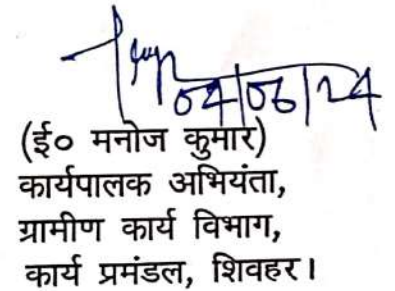 04/06/24
(ई० मनोज कुमार)
कार्यपालक अभियंता,
ग्रामीण कार्य विभाग,
कार्य प्रमंडल, शिवहर।